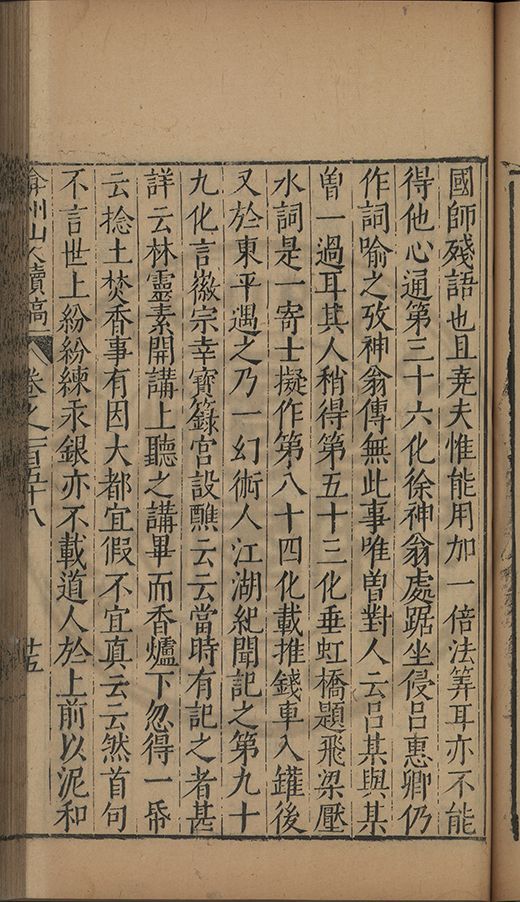 國師殘語也且堯夫惟能用加一倍法筭耳亦不能
得他心通第三十六化徐神翁處踞坐侵呂惠卿仍
作詞喻之攷神翁傳無此事唯曾對人云呂某與其
曾一過耳其人稍得第五十三化垂虹橋題飛梁壓
水詞是一寄士擬作第八十四化載推錢車入罐後
又於東平遇之乃一幻術人江湖紀聞記之第九十
九化言徽宗幸寳籙宮設醮云云當時有記之者甚
詳云林靈素開講上聽之講畢而香爐下忽得一帋
云捻土焚香事有因大都宜假不宜真云云然首句
不言世上紛紛練汞銀亦不載道人於上前以泥和
弇州山人續稿 卷之一百五十八 廿五